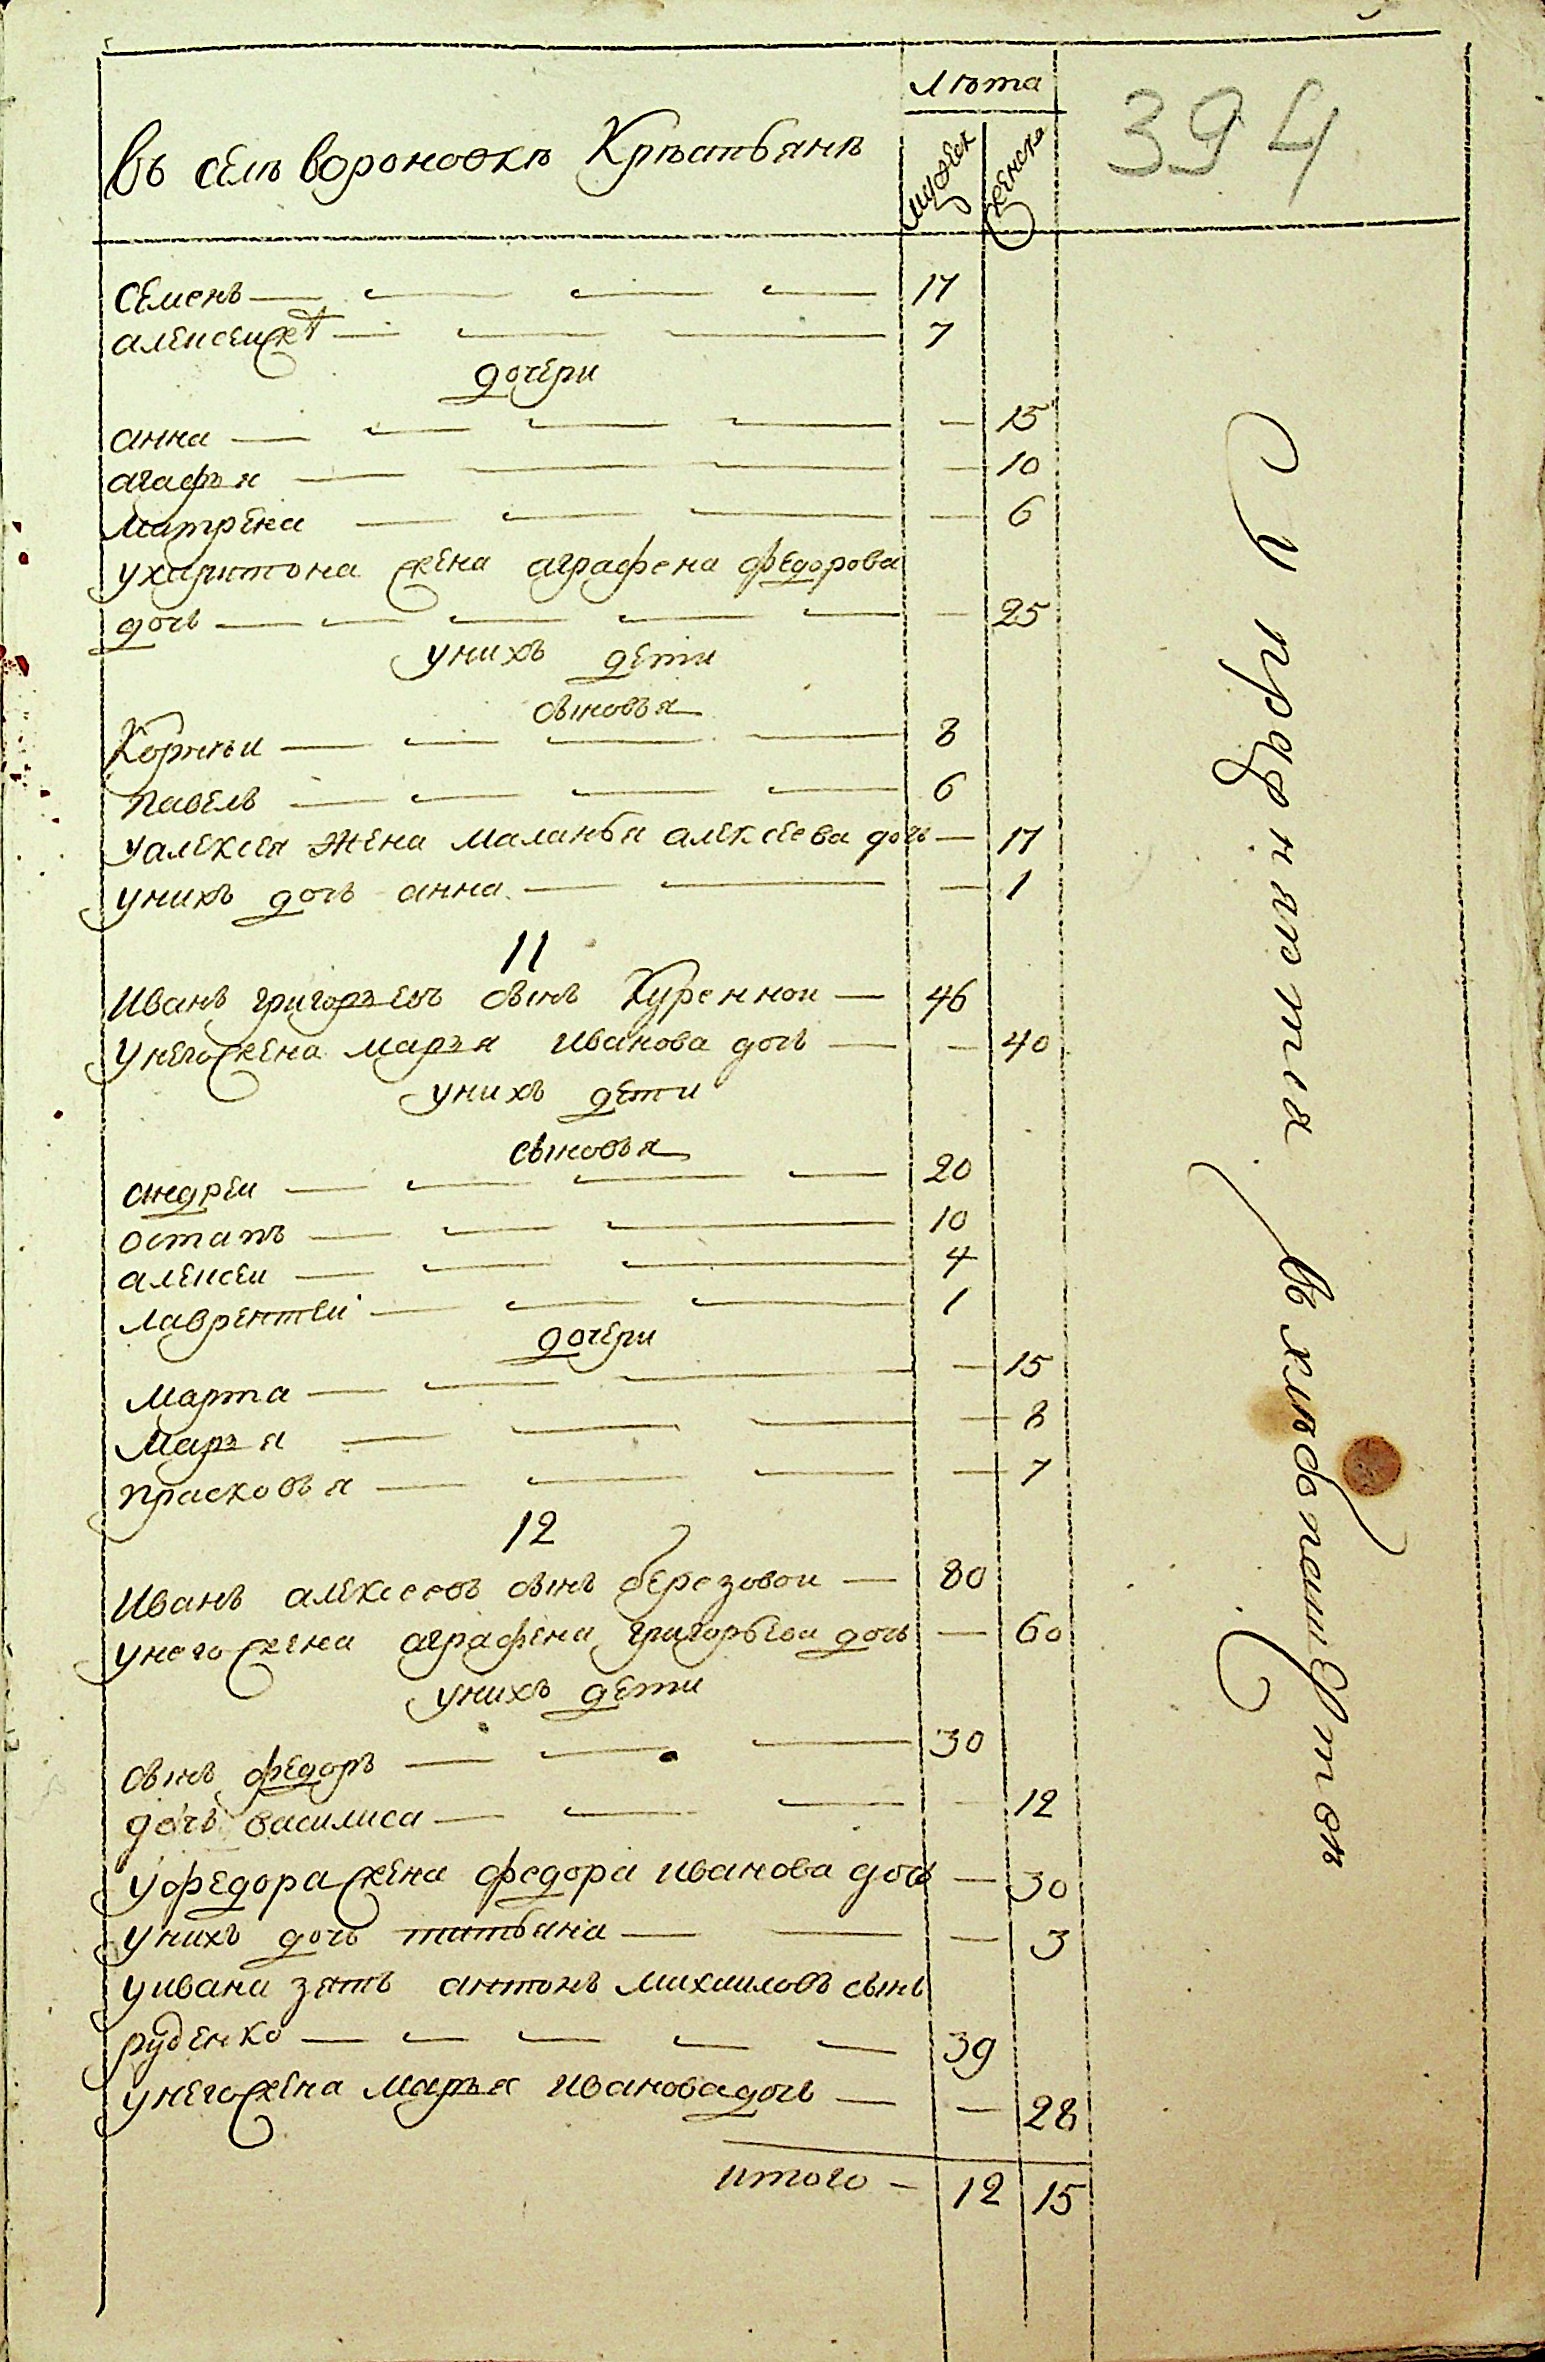 лѣта
въ селѣ вороновкѣ Крѣстьянѣ
мужск женска
394
семенъ 17
алексей же 7
дочери
анна — 15
агафья — 10
матрена — 6
ухаритона жена аграфена федорова
дочь — 25
унихъ дети
сыновья
Корнѣи 8
павелъ 6
уалексея жена маланья алексеева дочь — 17
унихъ дочь анна — 1
11
Иванъ григорьевъ сынъ Куренной — 46
унего жена марья иванова дочь — 40
унихъ дети
сыновья
андреи 20
остапъ 10
алексеи 4
лаврентей 1
дочери
марта — 15
марья — 8
прасковья — 7
12
Иванъ алексеевъ сынъ березовои — 80
унего жена аграфена григорьева дочь — 60
унихъ дети
сынъ федоръ 30
дочь василиса — 12
уфедора жена федора иванова дочь — 30
унихъ дочь татьяна — 3
уивана зять антонъ михаиловъ сынъ
руденко 39
унего жена марья иванова дочь — 28
итого — 12 15